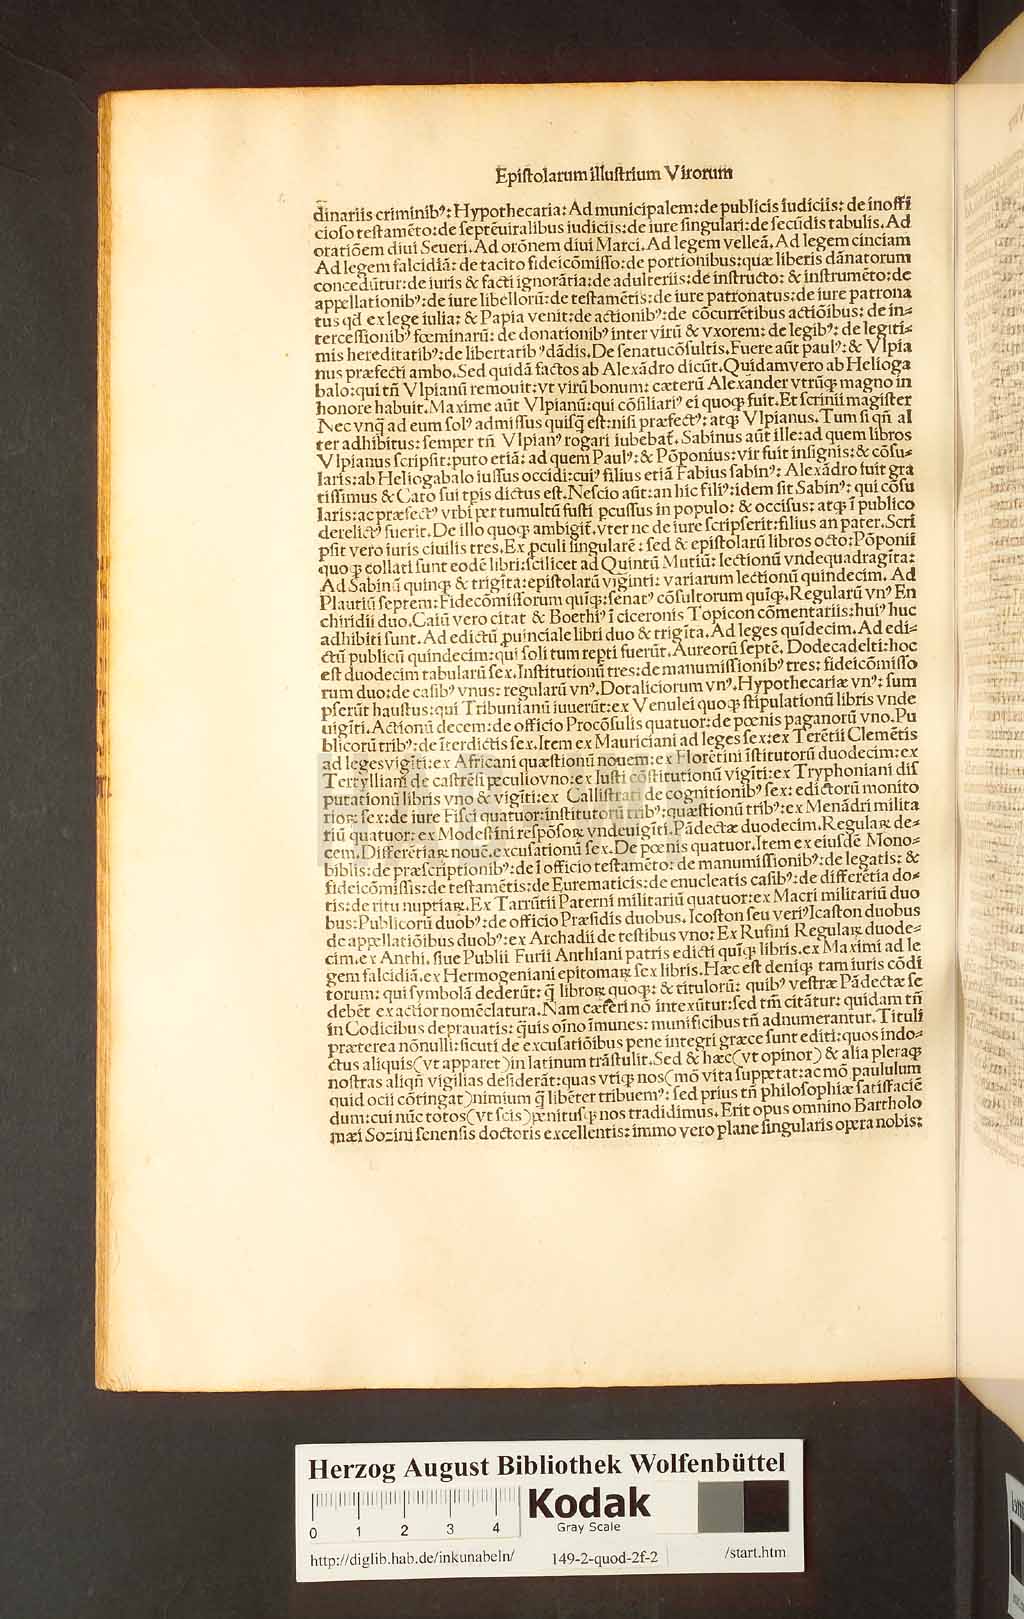 Epiſtolarum illuſtrium Virorum
dinariis criminibꝰ: Hypothecaria: Ad municipalem: de publicis iudiciis: de inoffi
cioſo teſtamēto: de ſeptēuiralibus iudiciis: de iure ſingulari: de ſecūdis tabulis. Ad
oratiōem diui Seueri. Ad orōnem diui Marci. Ad legem velleā. Ad legem cinciam
Ad legem falcidiā: de tacito fideicōmiſſo: de portionibus: quæ liberis dānatorum
concedūtur: de iuris & facti ignorātia: de adulteriis: de inſtructo: & inſtrumēto: de
appellationibꝰ: de iure libellorū: de teſtamētis: de iure patronatus: de iure patrona
tus qd̄ ex lege iulia: & Papia venit: de actionibꝰ: de cōcurrētibus actiōibus: de in⸗
terceſſionibꝰ fœminarū: de donationibꝰ inter virū & vxorem: de legibꝰ: de legiti⸗
mis hereditatibꝰ: de libertatibꝰ dādis. De ſenatucōſultis. Fuere aūt paulꝰ: & Vlpia
nus præfecti ambo. Sed quidā factos ab Alexādro dicūt. Quidam vero ab Helioga
balo: qui tn̄ Vlpianū remouit: vt virū bonum: cæterū Alexander vtrūqꝫ magno in
honore habuit. Maxime aūt Vlpianū: qui cōſiliariꝰ ei quoqꝫ fuit. Et ſcrinii magiſter
Nec vnq̄ ad eum ſolꝰ admiſſus quiſq̄ eſt: niſi præfectꝰ: atqꝫ Vlpianus. Tum ſi qn̄ al
ter adhibitus: ſemper tn̄ Vlpianꝰ rogari iubebat̄. Sabinus aūt ille: ad quem libros
Vlpianus ſcripſit: puto etiā: ad quem Paulꝰ: & Pōponius: vir fuit inſignis: & cōſu⸗
laris: ab Heliogabalo iuſſus occidi: cuiꝰ filius etiā Fabius ſabinꝰ: Alexādro fuit gra
tiſſimus & Cato ſui tp̄is dictus eſt. Neſcio aūt: an hic filiꝰ: idem ſit Sabinꝰ: qui cōſu
laris: ac præfectꝰ vrbi per tumultū fuſti ꝑcuſſus in populo: & occiſus: atqꝫ ī publico
derelictꝰ fuerit. De illo quoqꝫ ambigit̄. vter ne de iure ſcripſerit: filius an pater. Scri
pſit vero iuris ciuilis tres. Ex ꝓculi ſingularē: ſed & epiſtolarū libros octo: Pōponii
quoqꝫ collati ſunt eodē libri: ſcilicet ad Quintū Mutiū: lectionū vndequadragīta:
Ad Sabinū quinqꝫ & trigīta: epiſtolarū viginti: variarum lectionū quindecim. Ad
Plautiū ſeptem: Fidecōmiſſorum quīqꝫ: ſenatꝰ cōſultorum quīqꝫ. Regularū vnꝰ En
chiridii duo. Caiū vero citat & Boethiꝰ ī ciceronis Topicon cōmentariis: huiꝰ huc
adhibiti ſunt. Ad edictū ꝓuinciale libri duo & trigīta. Ad leges quīdecim. Ad edi⸗
ctū publicū quindecim: qui ſoli tum repti fuerūt. Aureorū ſeptē. Dodecadelti: hoc
eſt duodecim tabularū ſex. Inſtitutionū tres: de manumiſſionibꝰ tres: fideicōmiſſo
rum duo: de caſibꝰ vnus: regularū vnꝰ. Dotaliciorum vnꝰ. Hypothecariæ vnꝰ: ſum
pſerūt hauſtus: qui Tribunianū iuuerūt: ex Venulei quoqꝫ ſtipulationū libris vnde
uigīti. Actionū decem: de officio Procōſulis quatuor: de pœnis paganorū vno. Pu
blicorū tribꝰ: de īterdictis ſex. Item ex Mauriciani ad leges ſex: ex Terētii Clemētis
ad leges vigīti: ex Africani quæſtionū nouem: ex Florētini īſtitutorū duodecim: ex
Tertylliani de caſtrēſi peculio vno: ex Iuſti cōſtitutionū vigīti: ex Tryphoniani diſ
putationū libris vno & vigīti: ex Calliſtrati de cognitionibꝰ ſex: edictorū monito
rioꝝ ſex: de iure Fiſci quatuor: inſtitutorū tribꝰ: quæſtionū tribꝰ: ex Menādri milita
riū quatuor: ex Modeſtini reſpōſoꝝ vndeuigīti. Pādectæ duodecim. Regulaꝝ de⸗
cem. Differētiaꝝ nouē. excuſationū ſex. De pœnis quatuor. Item ex eiuſdē Mono⸗
biblis: de præſcriptionibꝰ: de ī officio teſtamēto: de manumiſſionibꝰ: de legatis: &
fideicōmiſſis: de teſtamētis: de Eurematicis: de enucleatis caſibꝰ: de differētia do⸗
tis: de ritu nuptiaꝝ. Ex Tarrūtii Paterni militariū quatuor: ex Macri militariū duo
bus: Publicorū duobꝰ: de officio Præſidis duobus. Icoſton ſeu veriꝰ Icaſton duobus
de appellatiōibus duobꝰ: ex Archadii de teſtibus vno: Ex Rufini Regulaꝝ duode⸗
cim. ex Anthi. ſiue Publii Furii Anthiani patris edicti quīqꝫ libris. ex Maximi ad le
gem falcidiā. ex Hermogeniani epitomaꝝ ſex libris. Hæc eſt deniqꝫ tam iuris cōdi
torum: qui ſymbolā dederūt: q̄ libroꝝ quoqꝫ: & titulorū: quibꝰ veſtræ Pādectæ ſe
debēt exactior nomēclatura. Nam cæteri nō intexūtur: ſed tm̄ citātur: quidam tn̄
in Codicibus deprauatis: q̄uis oīno īmunes: munificibus tn̄ adnumerantur. Tituli
præterea nōnulli: ſicuti de excuſatiōibus pene integri græce ſunt editi: quos indo⸗
ctus aliquis (vt apparet) in latinum trāſtulit. Sed & hæc (vt opinor) & alia pleraqꝫ
noſtras aliqn̄ vigilias deſiderāt: quas vtiqꝫ nos (mō vita ſuppetat: ac mō paululum
quid ocii cōtingat) nimium q̄ libēter tribuemꝰ: ſed prius tn̄ philoſophiæ ſatiſfaciē
dum: cui nūc totos (vt ſcis) penitusqꝫ nos tradidimus. Erit opus omnino Bartholo
mæi Sozini ſenenſis doctoris excellentis: immo vero plane ſingularis opera nobis:
Herzog August Bibliothek Wolfenbüttel
0 1 2 3 4
Kodak
Gray Scale
http://diglib.hab.de/inkunabeln/ 149-2-quod-2f-2 /start.htm